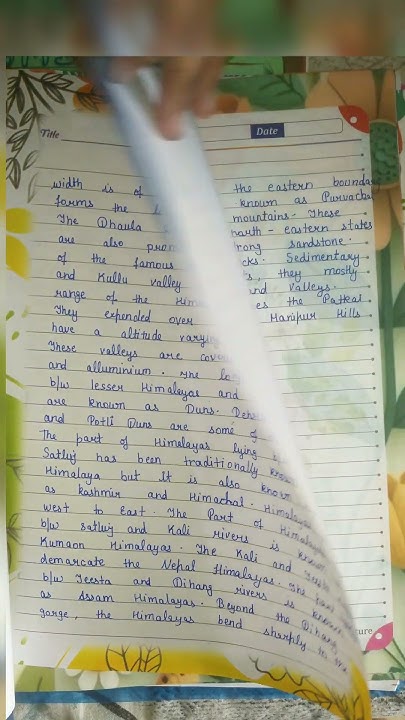 Title
Date
width is of the eastern bounda
forms the known as Purvacha
The Dhaula mountains - These
are also pro north - eastern states
of the famous rong sandstone.
and Kullu valley cks. Sedimentary
range of the Hima s, they mostly
They expended over and valleys.
have a altitude varyin es the Patkai
These valleys are cove Manipur Hills
and alluminium. The lo
b/w lesser Himalayas and
are known as Duns. Dehr
and Potli Duns are some
The part of Himalayas lying
Satluj has been traditionally know
Himalaya but it is also known
as kashmir and Himachal. Himalaya
west to East. The Part of Himalaya
b/w satluj and Kali rivers is known
Kumaon Himalayas. The Kali and Teesta
demarcate the Nepal Himalayas. The
b/w Teesta and Dihang rivers is known
as Assam Himalayas. Beyond the Dihang
gorge, the Himalayas bend sharply to the
ture